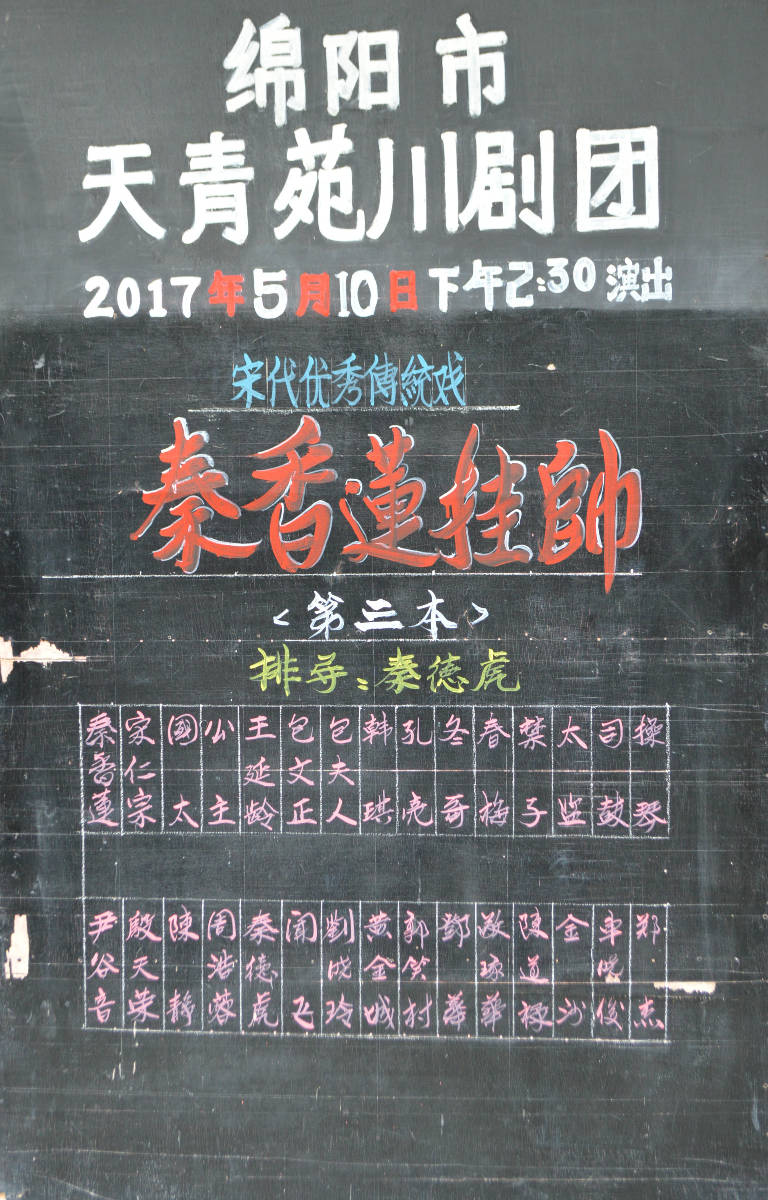 绵阳市
天青苑川剧团
2017年5月10日下午2:30演出
宋代优秀傳統戏
秦香蓮挂帥
<第三本>
排导：秦德虎
秦香蓮 宋仁宗 國太 公主 王延龄 包文正 包夫人 韩琪 孔亮 冬哥 春梅 禁子 太监 司鼓 操琴
尹谷音 殷天荣 陳静 周浩蓉 秦德虎 闻飞 劉成玲 黄金城 郭笑村 鄧華 敬琢華 陳道 金沙 车悦俊 郑杰